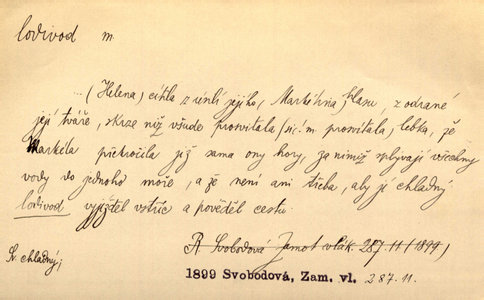 lodivod m.
...(Helena) cítila z ústí jejího, (Markétina) hlasu, z odrané
její tváře, skrze niž všude prosvítala (sic! m. prosvítala) lebka, že
Markéta překročila již sama ony hory, za nimiž splývají všechny
vody do jednoho moře, a že není ani třeba, aby jí chladný
lodivod vyjížděl vstříc a pověděl cestu.
R Svobodová Zamotť vlák. 287.11 (1899)
Sr. chladný;
1899 Svobodová, Zam. vl. 287.11.